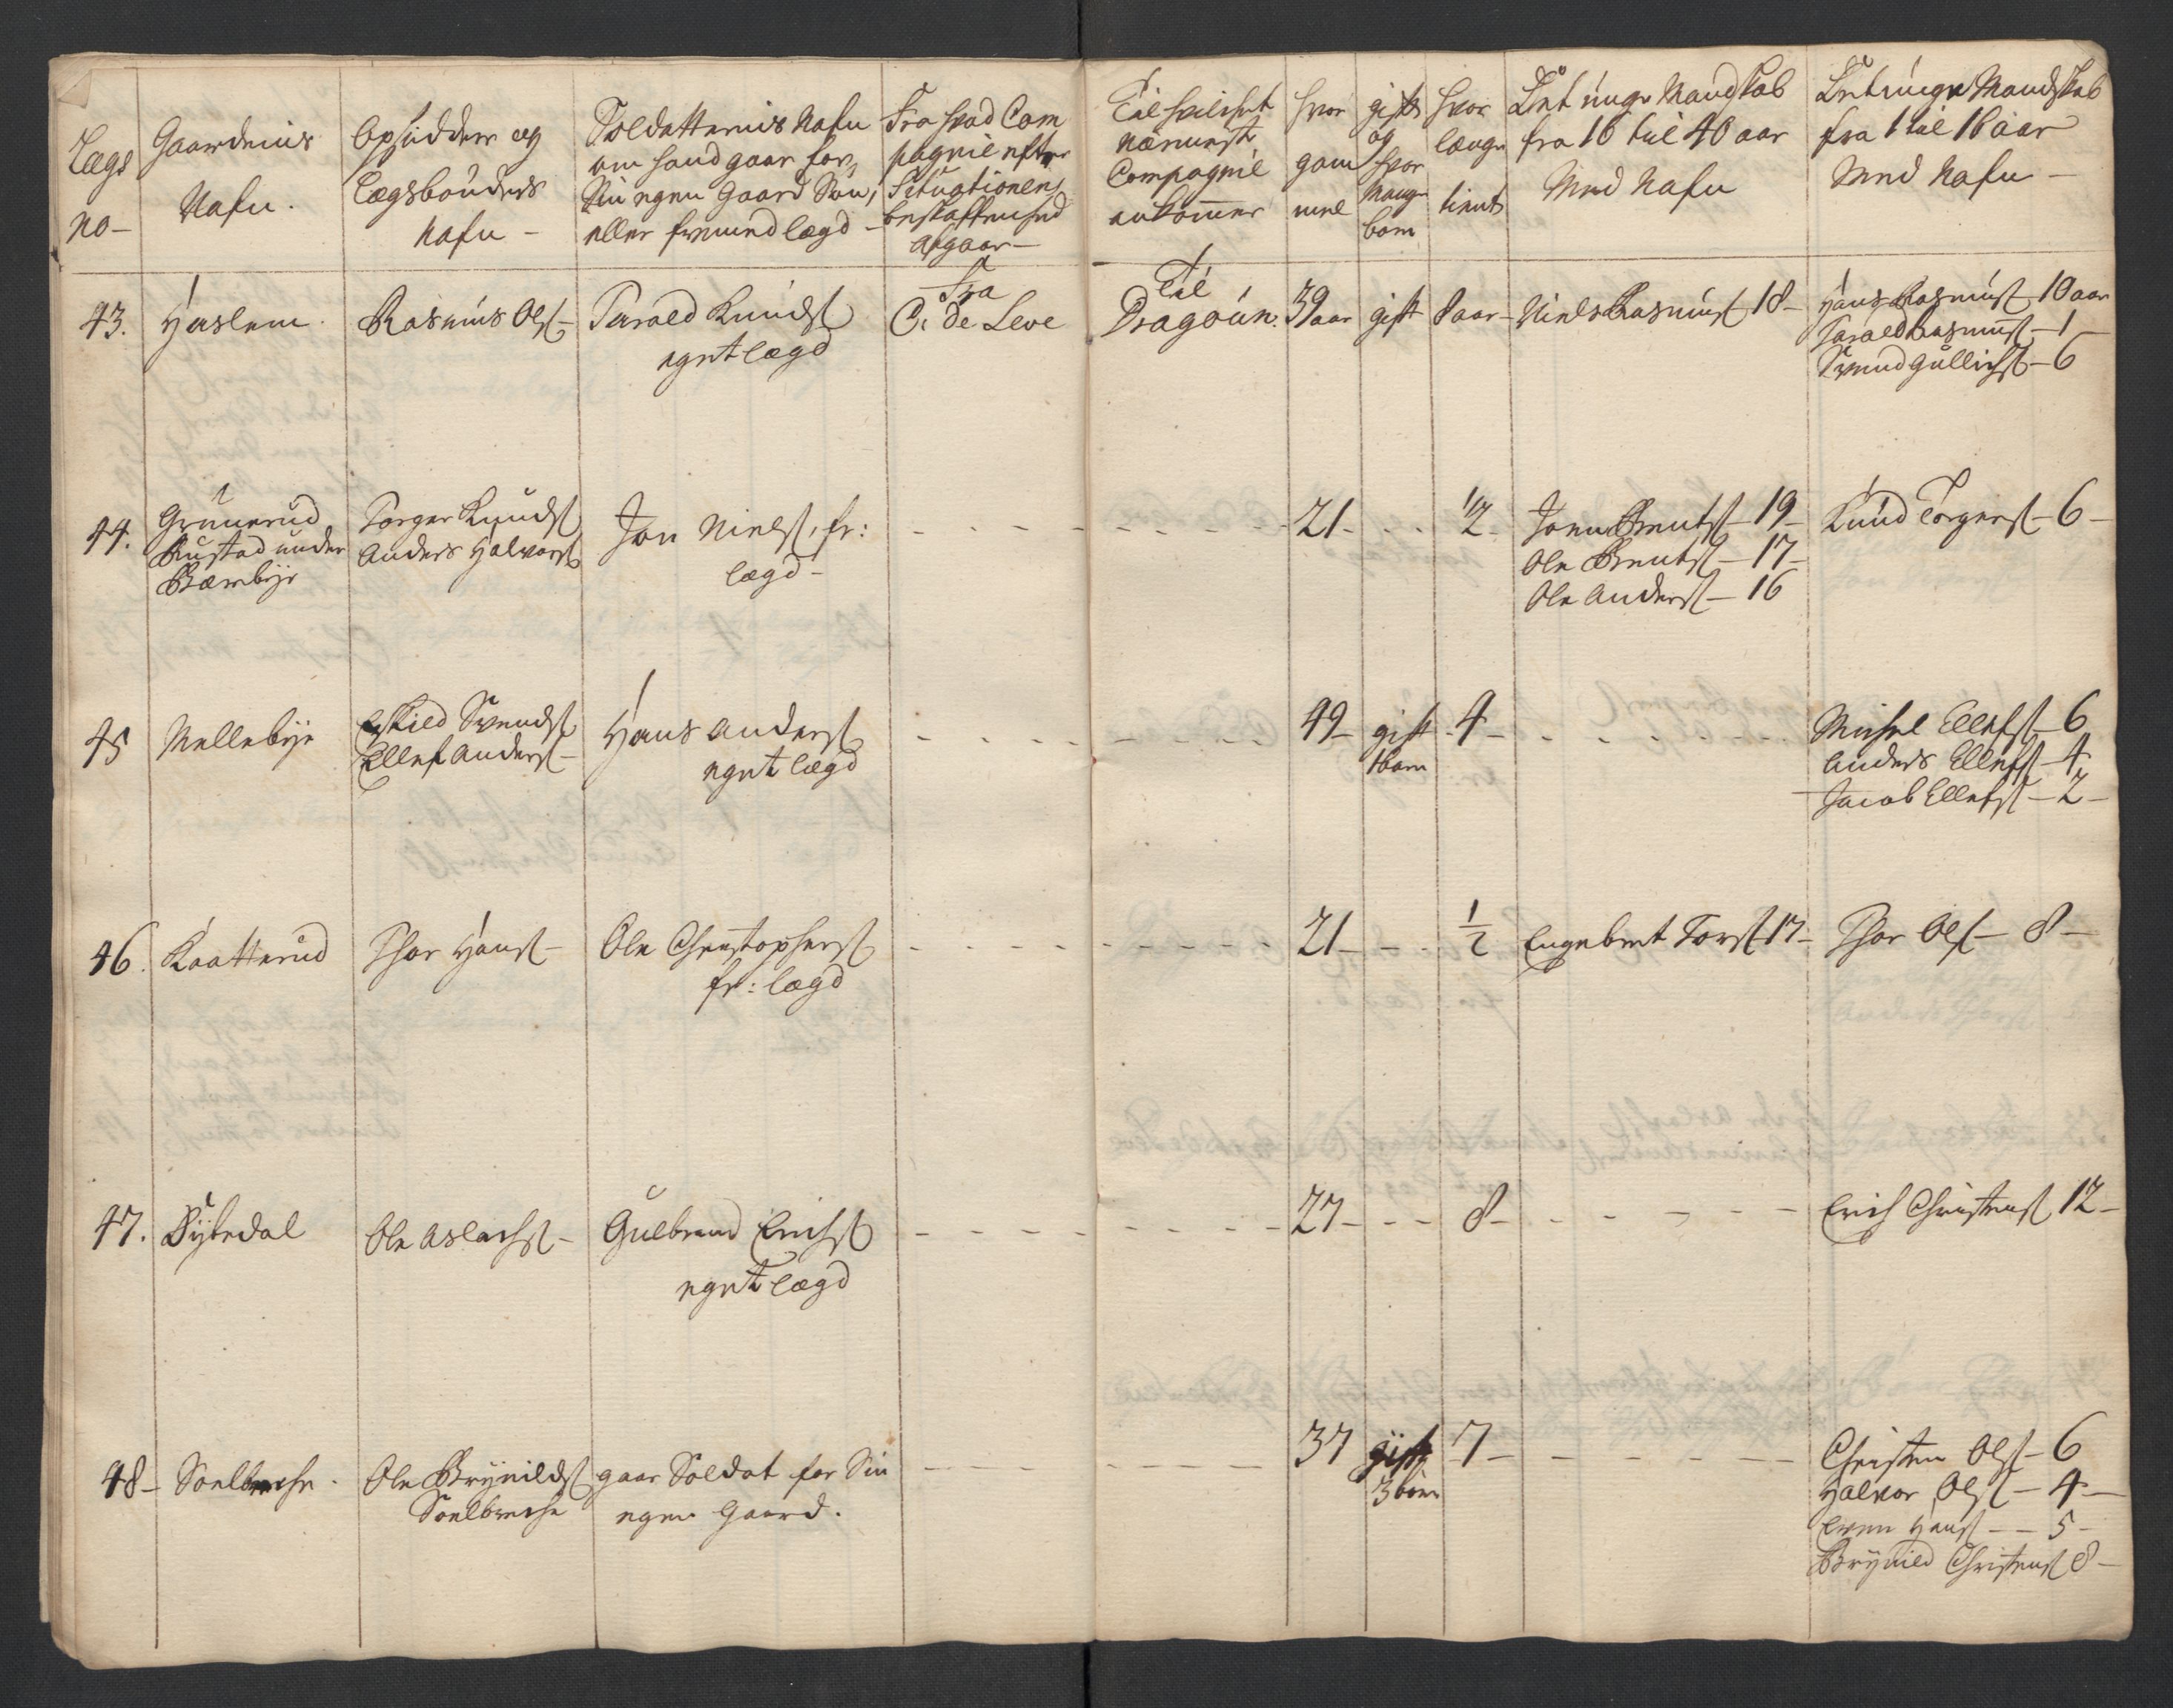 Lægs
no-
Gaardenis
Nafn.
Opsidder og
Lægsbønders
nafn -
Soldatternis Nafn
om hand gaar for
Sin egen Gaard Søn,
eller fremmed lægd -
Fra hvad Com
pagnie efter
Situationens
beskaffenhed
afgaar-
Til hvilchet
nærmeste
Compagnie
ankommer
hvor
gam
mel
gift
og
hvor
mange
born
hvor
længe
tient
Det unge Mandskab
fra 16 til 40 aar
Med Nafn
Det unge Mandskab
fra 1 til 16 aar
Med Nafn -
43. Haslem. Rasmus Ols- Tarald Knuds
egnt lægd
Fra
C: De Seve
Til
Dragoun 39 aar gift 8 aar- Niels Rasmus 18-
Hans Rasmus 10 aar
Tarald Rasmus - 1 -
Svend Gullichs - 6
44. Grünerud
Rustad under
Bærbye
Torger Knuds
Anders Halvors
Jon Niels, fr:
lægd-
21- 1/2-
Joen Brents - 19-
Ole Brents - 17-
Ole Anders - 16
Knud Torgers - 6-
45 Mellebye Eskild Svends
Ellef Anders-
Hans Anders
egnt lægd
49- gift
1 born
4-
Michel Ellefs - 6
Anders Ellefs - 4
Jacob Ellefs - 2-
46. Kaatterud Thor Hans- Ole Christophers
fr: lægd
21- 1/2 Engebret Tors 17- Thor Ols - 8-
47. Dybedal Ole Aslachs- Gulbrand Erichs
egnt lægd
27- 8- Erich Christens 12-
48- Soelbreche. Ole Brynilds
Soelbreche
gaar Soldat for Sin
egen Gaard.
37 gift
3 børn
7-
Christen Ols - 6
Halvor Ols - 4-
Even Hans - - 5-
Brynild Christens 8-